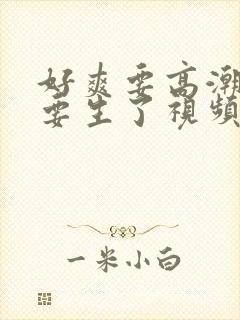 好爽要高潮
要生了視頻
一米小白